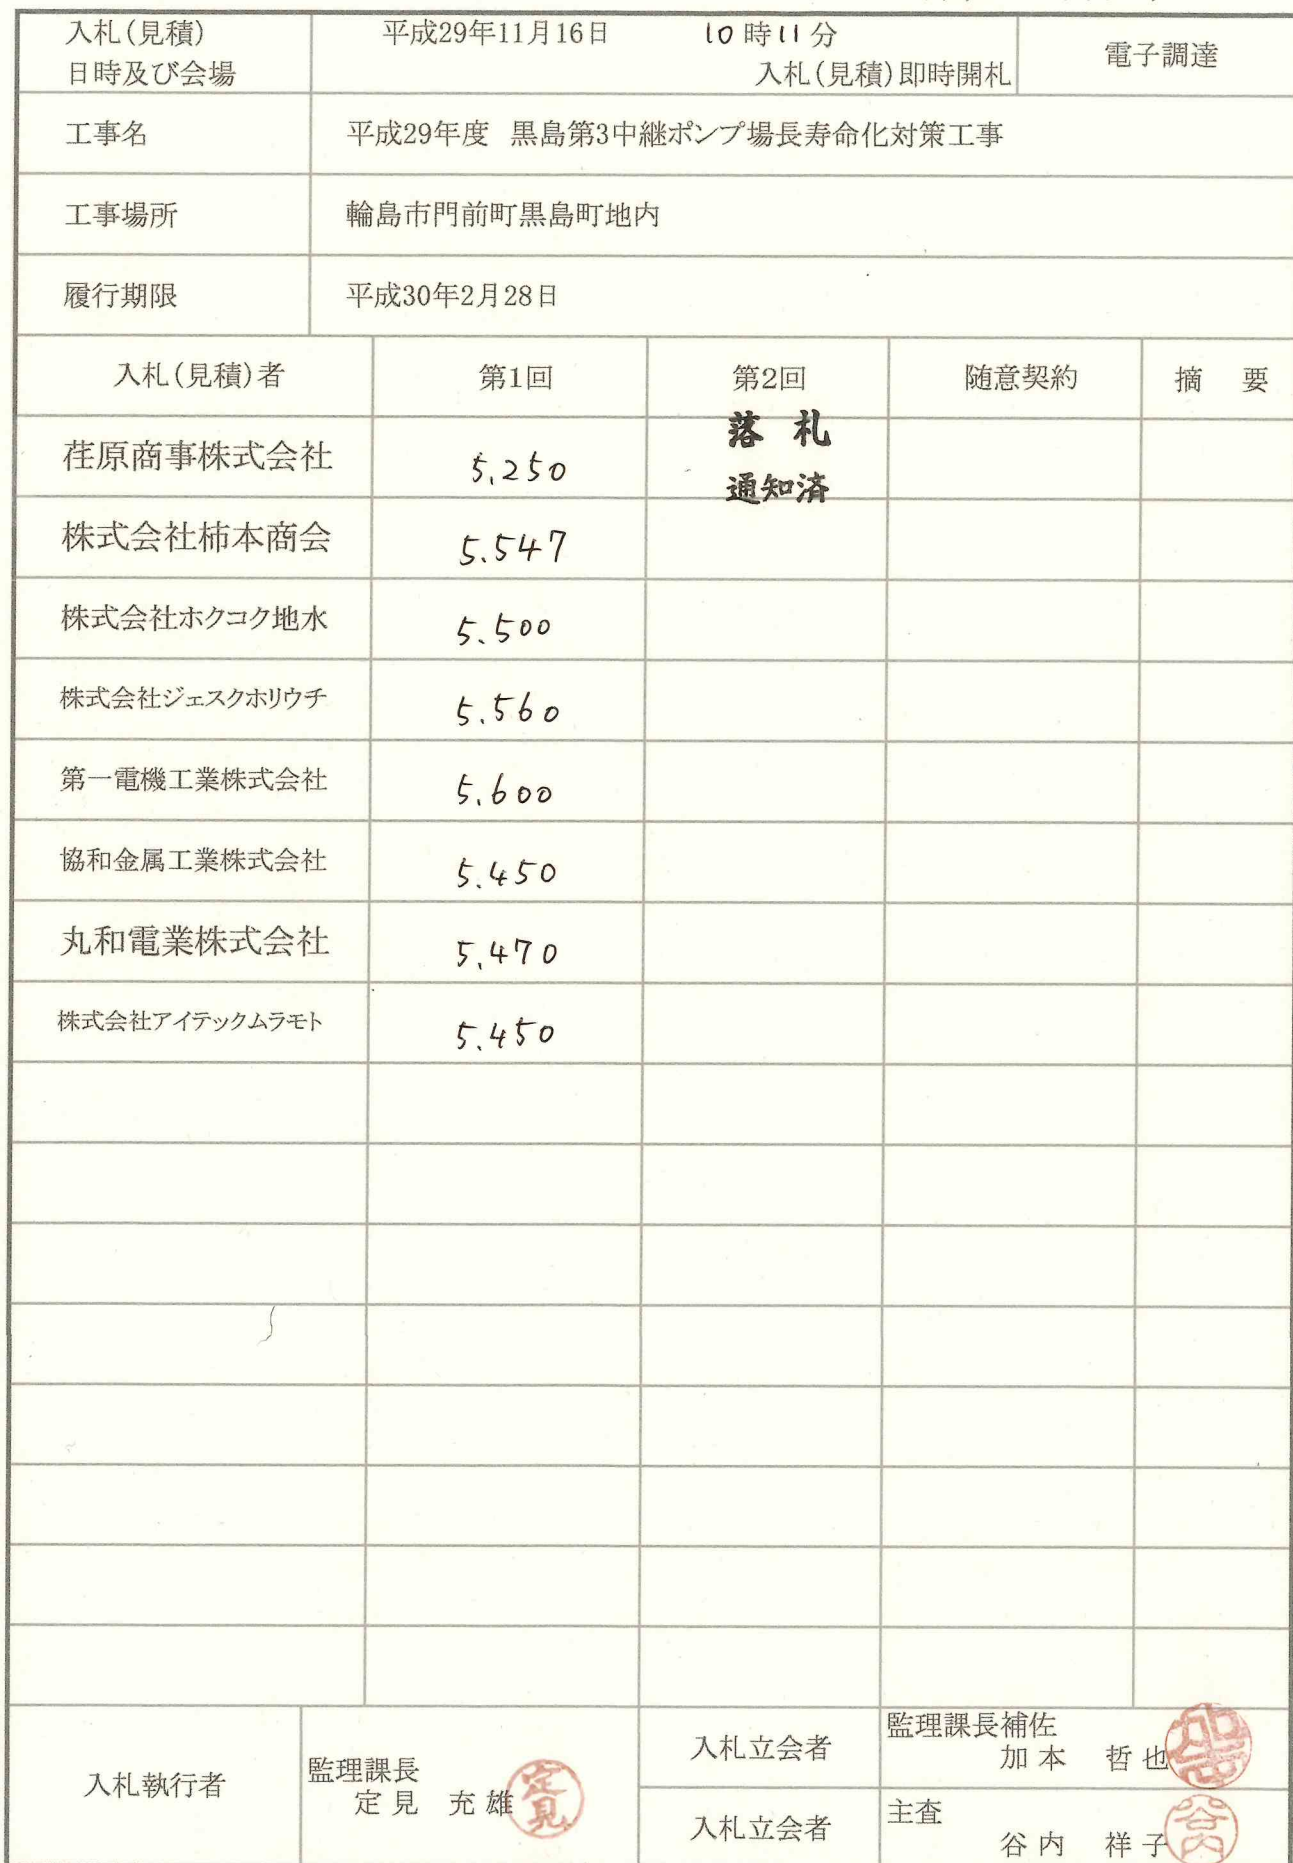 入札(見積) 平成29年11月16日 10時11分 電子調達
日時及び会場 入札(見積)即時開札
工事名 平成29年度 黒島第3中継ポンプ場長寿命化対策工事
工事場所 輪島市門前町黒島町地内
履行期限 平成30年2月28日
入札(見積)者 第1回 第2回 随意契約 摘 要
荏原商事株式会社 5.250 落札
通知済
株式会社柿本商会 5.547
株式会社ホクコク地水 5.500
株式会社ジェスクホリウチ 5.560
第一電機工業株式会社 5.600
協和金属工業株式会社 5.450
丸和電業株式会社 5.470
株式会社アイテックムラモト 5.450
入札執行者 監理課長
定見 充雄 定見
入札立会者 監理課長補佐
加本 哲也
入札立会者 主査
谷内 祥子 谷内